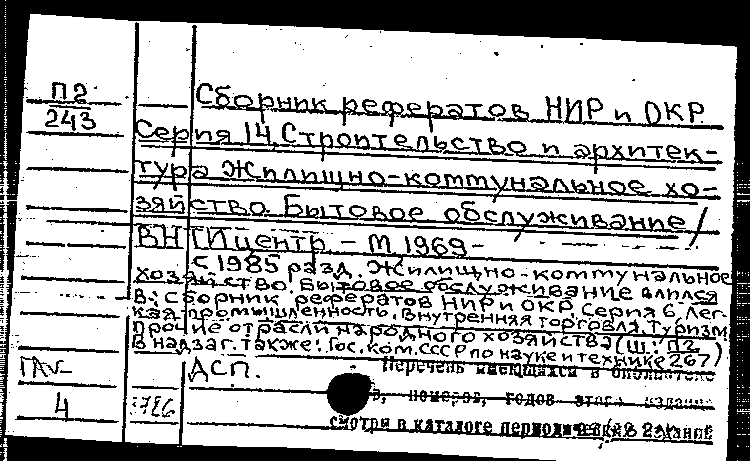 П2
243
Сборник рефератов НИР и ОКР.
Серия 14. Строительство и архитек-
тура Жилищно-коммунальное хо-
зяйство. Бытовое обслуживание /
ВНТИцентр. - М, 1969-
С 1985 разд. Жилищно-коммунальное
хозяйство. Бытовое обслуживание влился
в: Сборник рефератов НИР и ОКР. Серия 6, Лег-
кая промышленность. Внутренняя торговля. Туризм.
Прочие отрасли народного хозяйства (Ш: П2 267)
В надзаг. также: Гос. ком. СССР по науке и технике
ДСП.
4
Перечень имеющихся в библиотеке
номеров, годов этого издания
смотри в каталоге периодических изданий